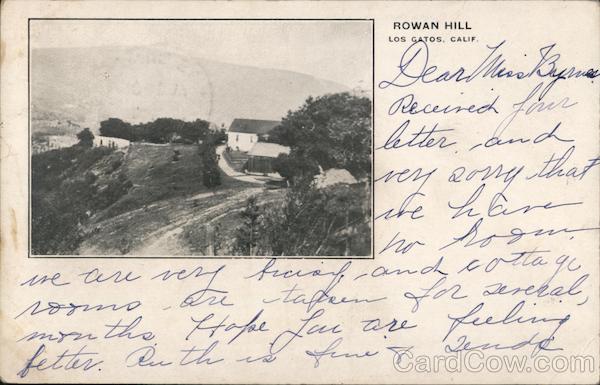 ROWAN HILL
LOS GATOS, CALIF.
Dear Miss Byrnes
Received your
letter and
very sorry that
we have
no room.
we are very busy, and cottage
rooms are taken for several,
months. Hope you are feeling
better. Ruth is fine & sends
CardCow.com